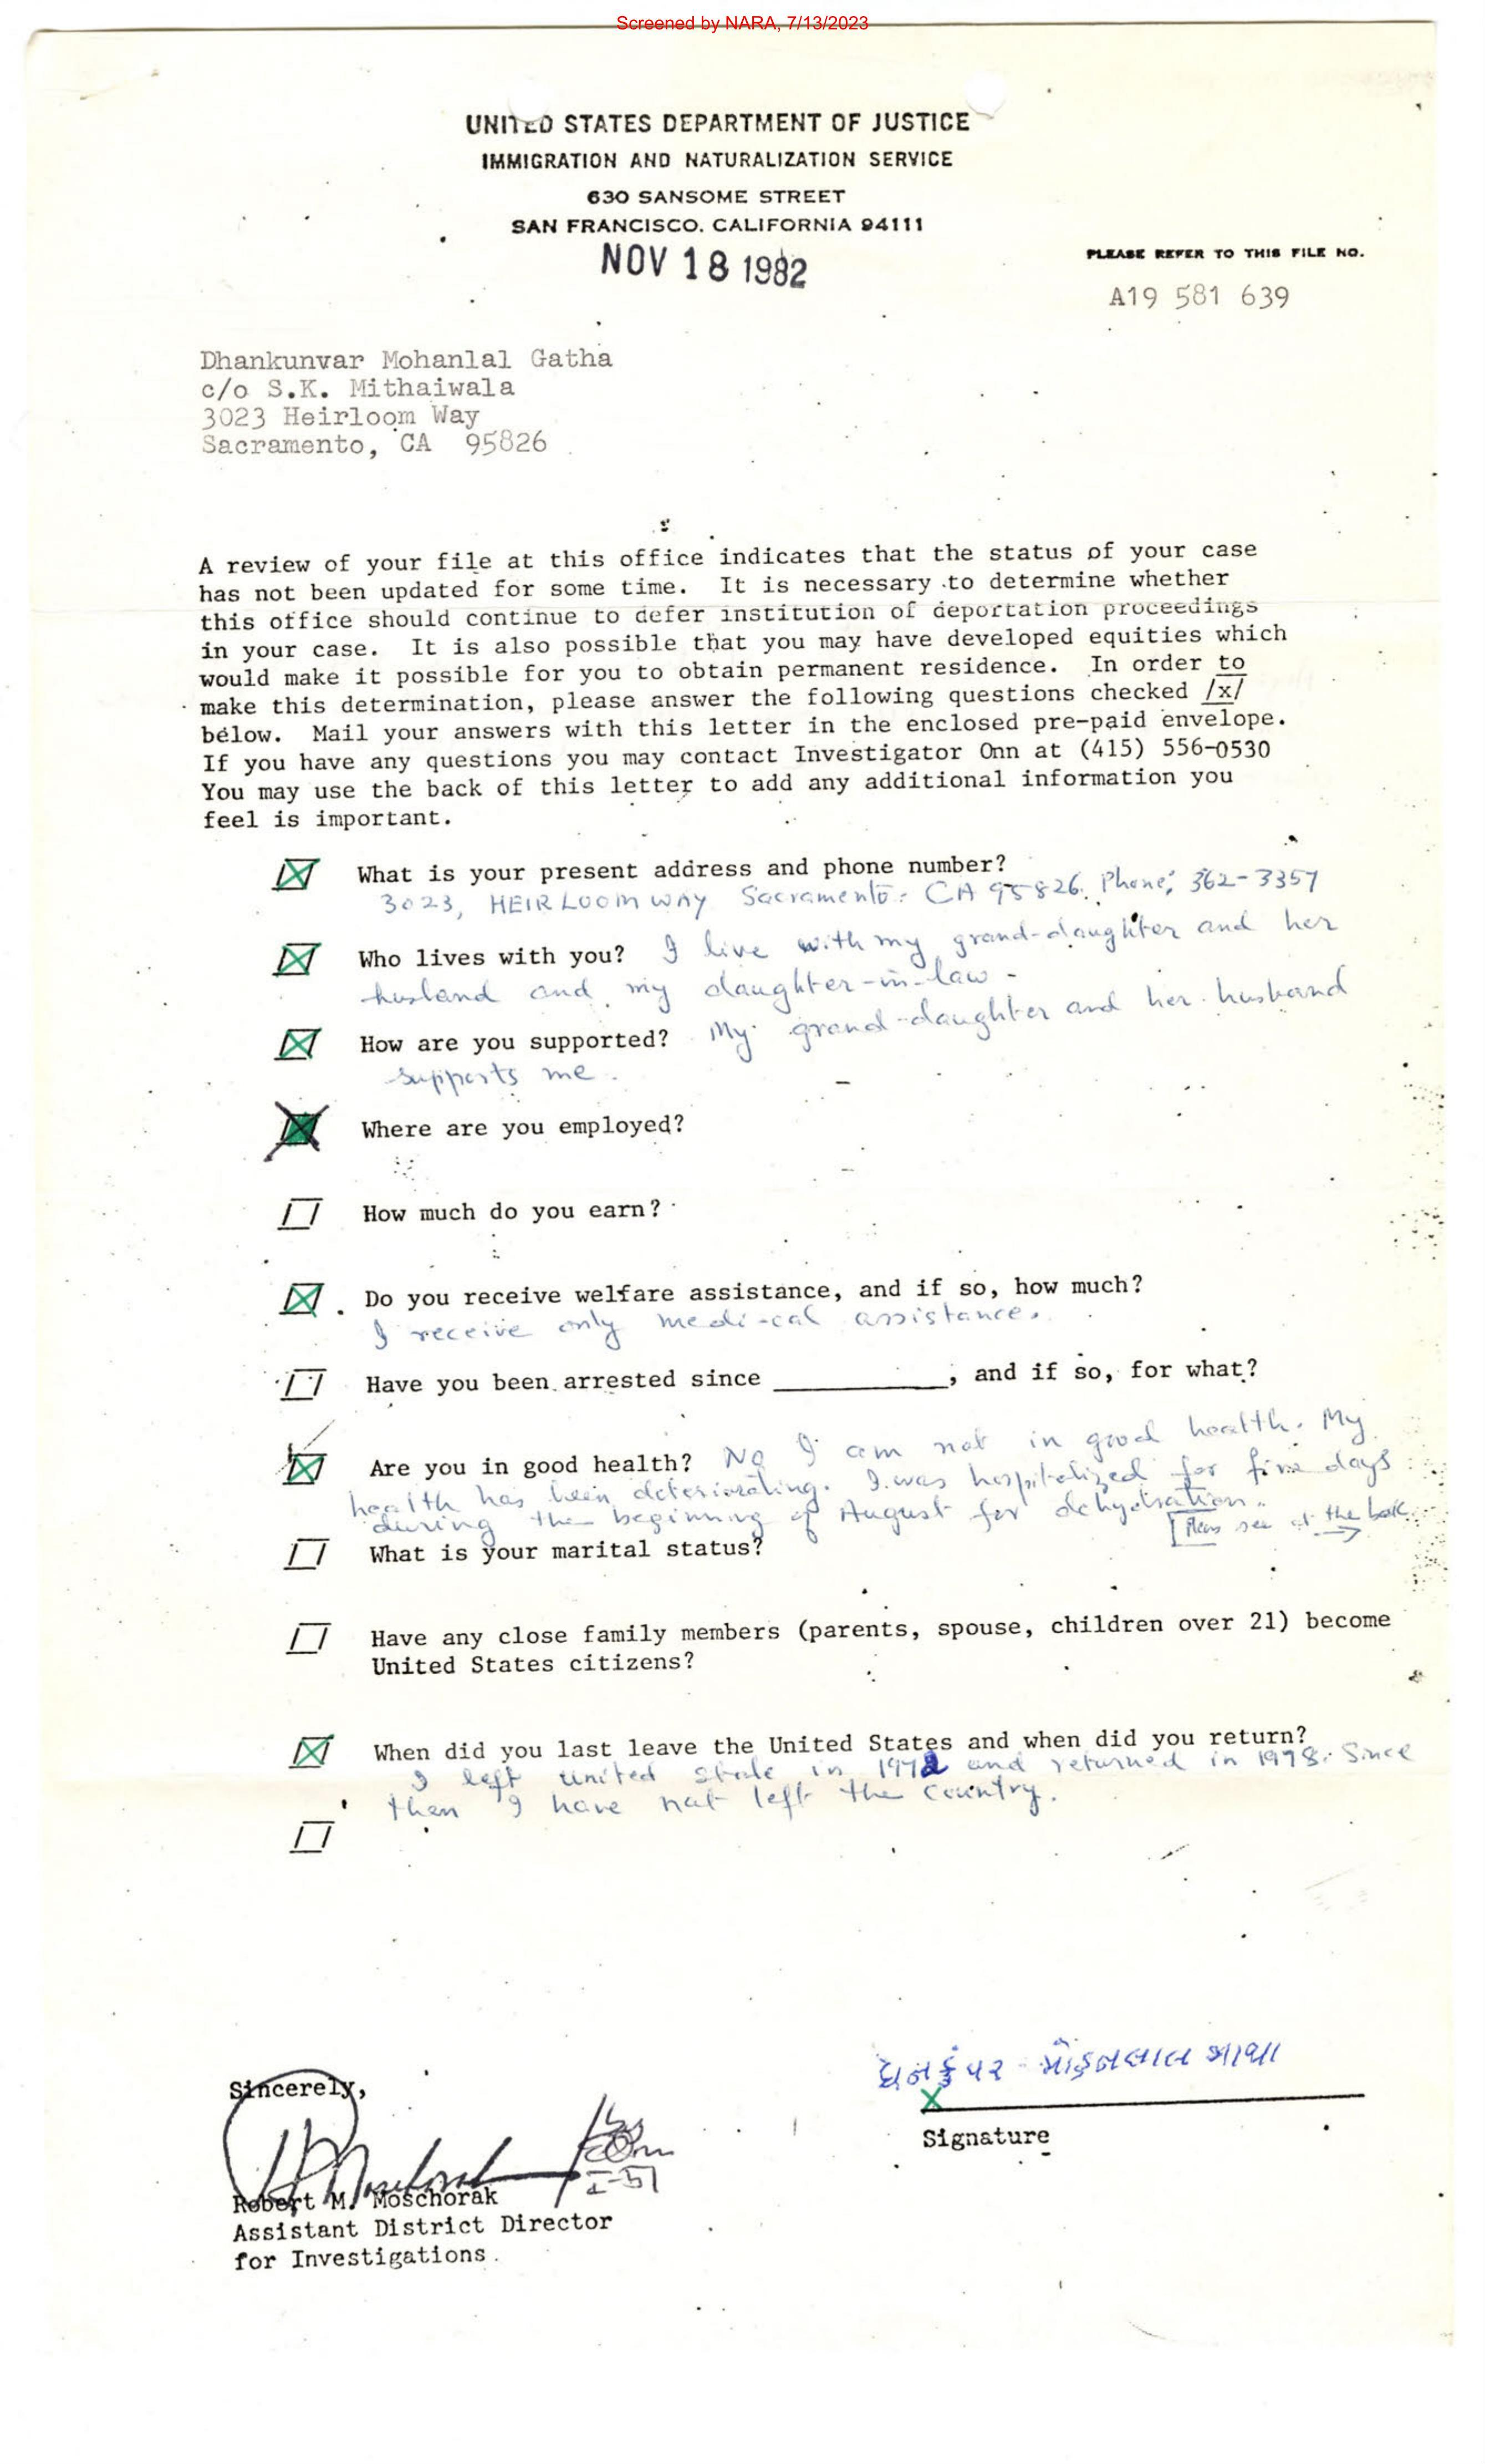 Screened by NARA, 7/13/2023
UNITED STATES DEPARTMENT OF JUSTICE
IMMIGRATION AND NATURALIZATION SERVICE
630 SANSOME STREET
SAN FRANCISCO, CALIFORNIA 94111
NOV 18 1982
PLEASE REFER TO THIS FILE NO.
A19 581 639
Dhankunvar Mohanlal Gatha
c/o S.K. Mithaiwala
3023 Heirloom Way
Sacramento, CA 95826
A review of your file at this office indicates that the status of your case
has not been updated for some time. It is necessary to determine whether
this office should continue to defer institution of deportation proceedings
in your case. It is also possible that you may have developed equities which
would make it possible for you to obtain permanent residence. In order to
make this determination, please answer the following questions checked /x/
below. Mail your answers with this letter in the enclosed pre-paid envelope.
If you have any questions you may contact Investigator Onn at (415) 556-0530
You may use the back of this letter to add any additional information you
feel is important.
What is your present address and phone number?
3023, HEIRLOOM WAY Sacramento. CA 95826. Phone: 362-3357
Who lives with you? I live with my grand-daughter and her
husband and my daughter-in-law.
How are you supported? My grand-daughter and her husband
supports me.
Where are you employed?
How much do you earn?
Do you receive welfare assistance, and if so, how much?
I receive only medi-cal assistance.
Have you been arrested since __________, and if so, for what?
Are you in good health? No I am not in good health. My
health has been deteriorating. I was hospitalized for five days
during the beginning of August for dehydration.
[Pleas see at the back
What is your marital status?
Have any close family members (parents, spouse, children over 21) become
United States citizens?
When did you last leave the United States and when did you return?
I left united state in 1972 and returned in 1978. Since
then I have not left the country.
ધનકુંવર મોહનલાલ ગાથા
X
Signature
Sincerely,
Robert M. Moschorak
Assistant District Director
for Investigations.